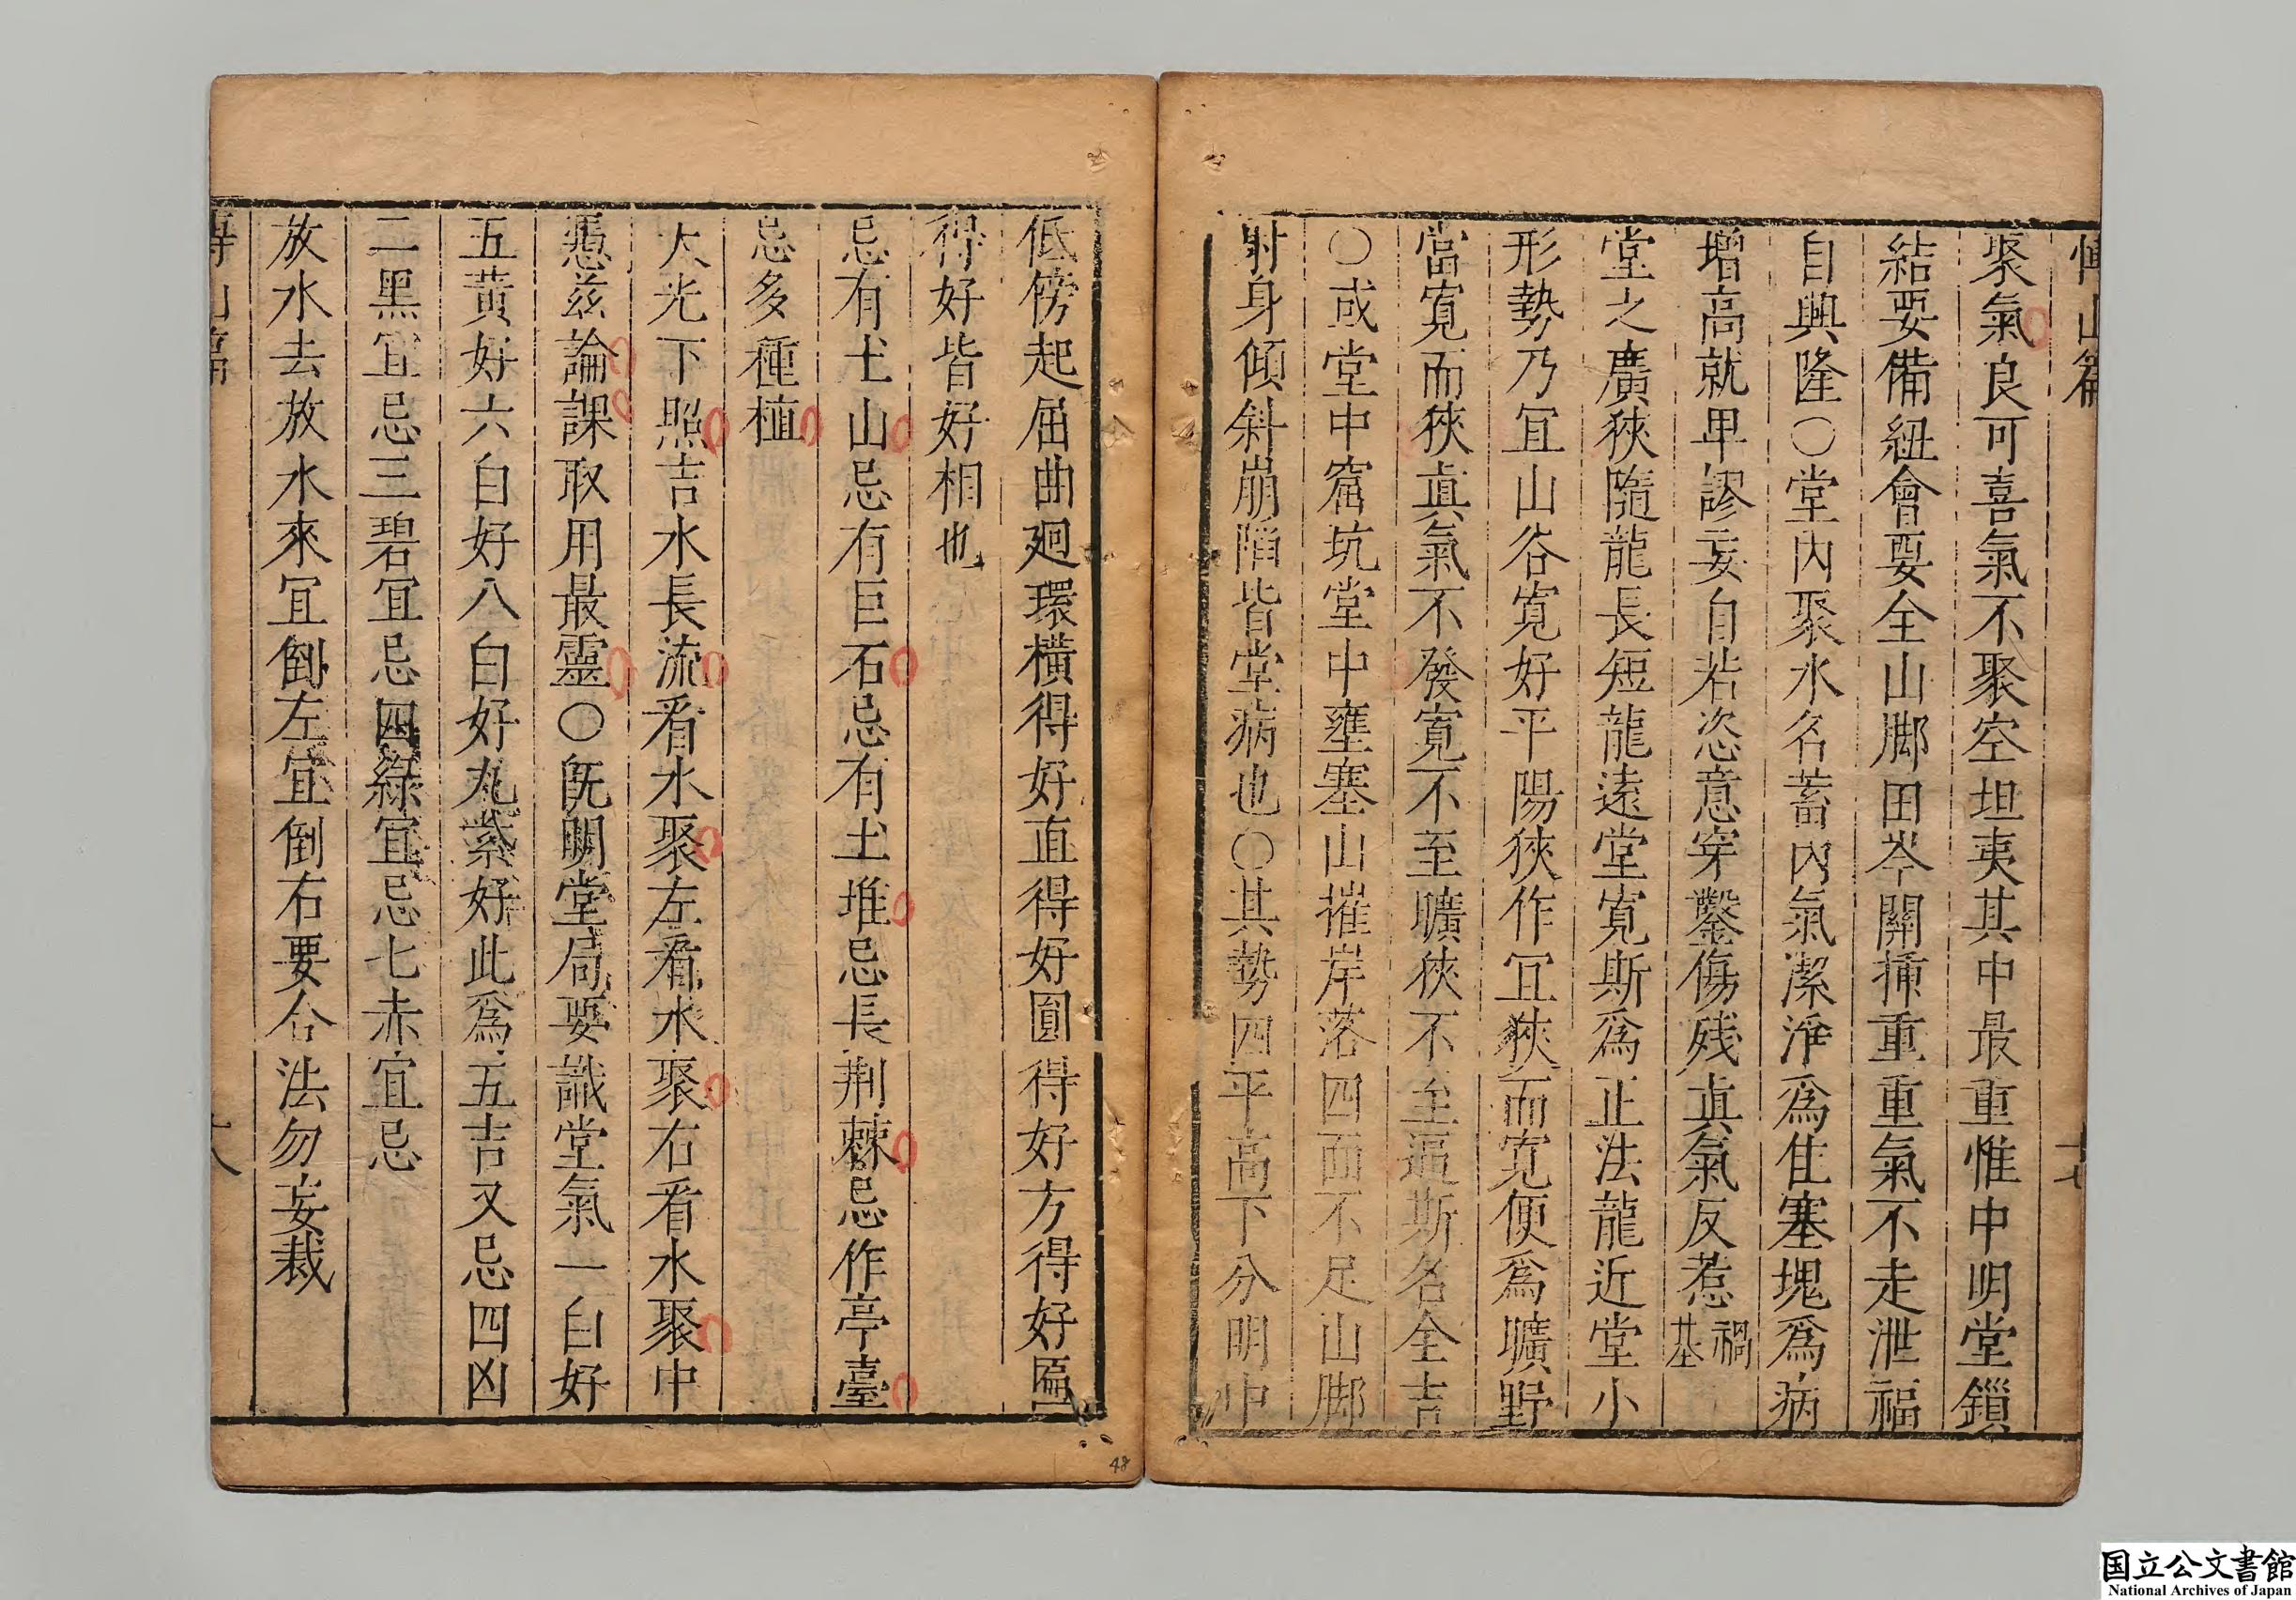 博山篇
十七
聚氣良可喜氣不聚空坦夷其中最重惟中明堂鎖
結要備紐會要全山脚田岑關揷重重氣不走泄福
自興隆○堂內聚水名蓄內氣潔淨爲佳塞塊爲病
增高就卑謬妄自若恣意穿鑿傷残眞氣反惹禍基
堂之廣狹隨龍長短龍遠堂寬斯爲正法龍近堂小
形勢乃冝山谷寬好平陽狹作冝狹而寬便爲曠野
當寬而狹眞氣不發寬不至曠狹不至逼斯名全吉
○或堂中窟坑堂中壅塞山摧岸落四面不足山脚
射身傾斜崩陷皆堂病也○其勢四平高下分明中
低傍起屈曲廻環橫得好直得好圓得好方得好匾
得好皆好相也
忌有土山忌有巨石忌有土堆忌長荆棘忌作亭臺
忌多種植
天光下照吉水長流看水聚左看水聚右看水聚中
慿兹論課取用最靈○旣明堂局要識堂氣一白好
五黃好六白好八白好九紫好此爲五吉又忌四凶
二黑宜忌三碧宜忌四綠宜忌七赤宜忌
放水去放水來宜倒左宜倒右要合法勿妄裁
博山篇
十八
48
国立公文書館
National Archives of Japan